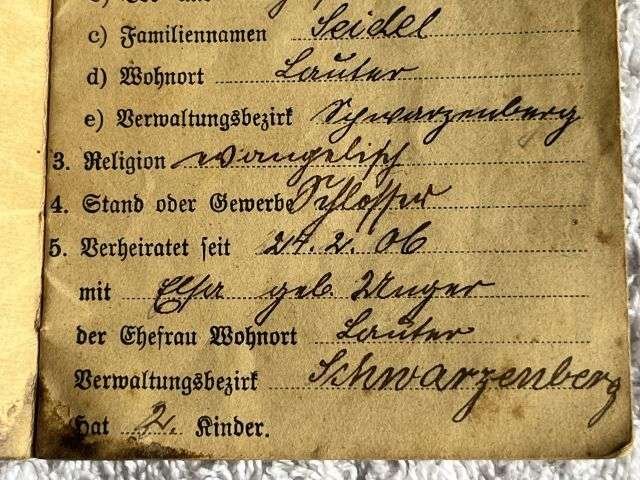 c) Familiennamen Seidel
d) Wohnort Lauter
e) Verwaltungsbezirk Schwarzenberg
3. Religion evangelisch
4. Stand oder Gewerbe Schlosser
5. Verheiratet seit 24. 2. 06
mit Elsa geb. Unger
der Ehefrau Wohnort Lauter
Verwaltungsbezirk Schwarzenberg
hat 2. Kinder.